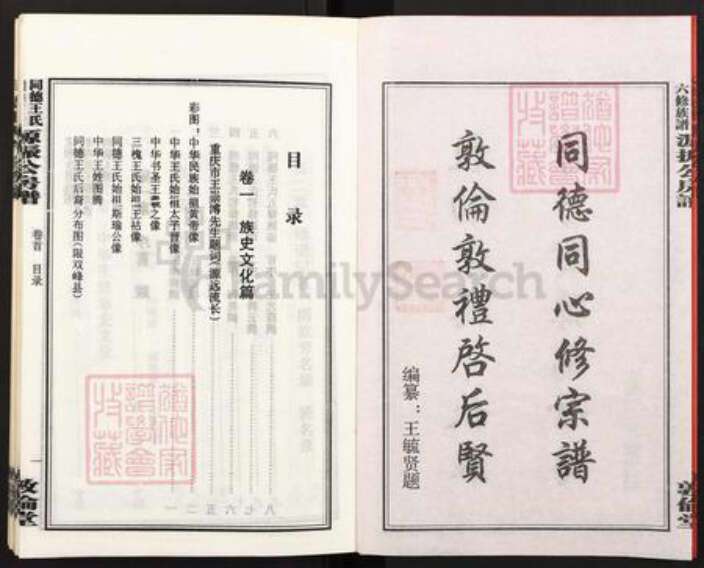 同德同心修宗譜
敦倫敦禮啓后賢
编纂：王毓贤题
敦倫堂
目录
卷一 族史文化篇
重庆市王崇溥先生题词（源远流长）
彩图：中华民族始祖黄帝像
中华王氏始祖太子晋像
中华书圣王羲之像
三槐王氏始祖王祜像
同德王氏始祖斯瑜公像
中华王姓图腾
同德王氏后裔分布图（限双峰县）
一
二
五
六
七
八
同德王氏
卷首 目录
一
敦倫堂
FamilySearch